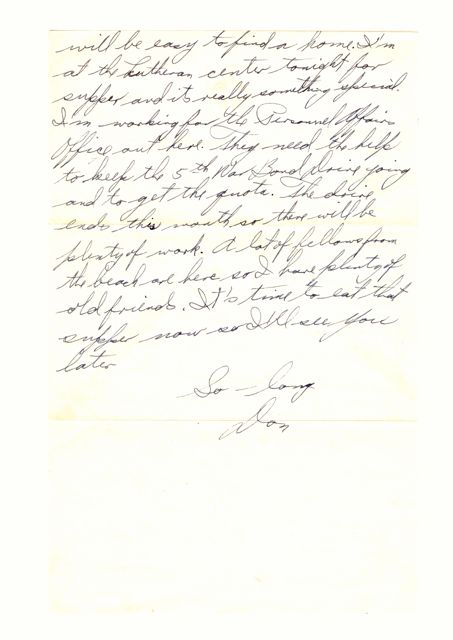 will be easy to find a home. I'm
at the Lutheran center tonight for
supper and it's really something special.
I'm working for the Personnel Affairs
Office out here. They need the help
to keep the 5th War Bond Drive going
and to get the quota. The drive
ends this month so there will be
plenty of work. A lot of fellows from
the beach are here so I have plenty of
old friends. It's time to eat that
supper now so I'll see you
later
So-long
Don